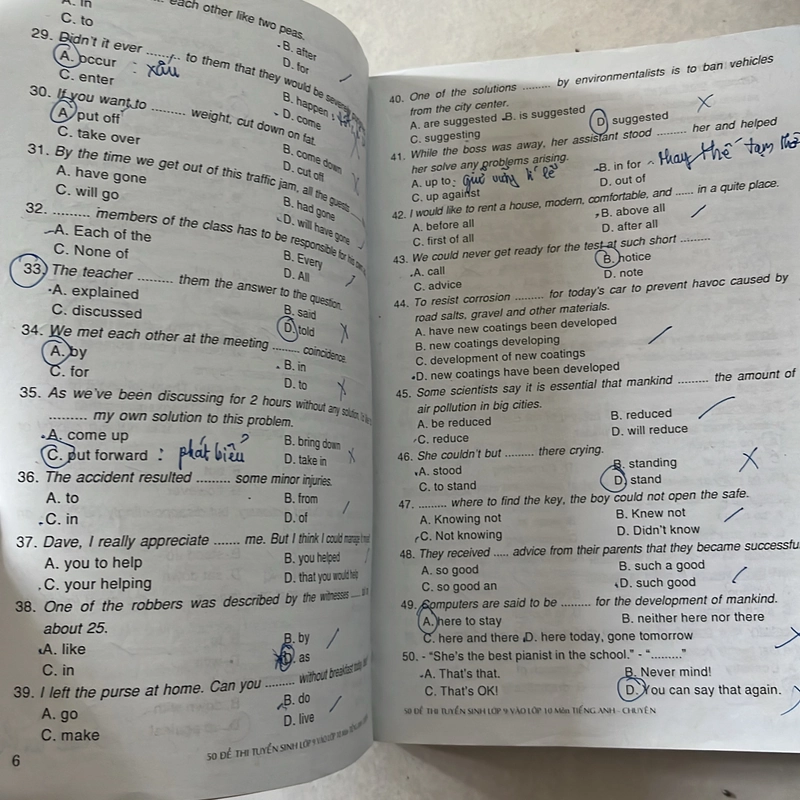 A. in
each other like two peas.
C. to
B. after
D. for
29. Didn't it ever ........ to them that they would be severely
A. occur : xấu
B. happen
C. enter
D. come
30. If you want to ......... weight, cut down on fat.
A. put off
B. come down
C. take over
D. cut off
31. By the time we get out of this traffic jam, all the guests
A. have gone
B. had gone
C. will go
D. will have gone
32. ......... members of the class has to be responsible for his
A. Each of the
B. Every
C. None of
D. All
33. The teacher ......... them the answer to the question.
A. explained
B. said
C. discussed
D. told
34. We met each other at the meeting ......... coincidence.
A. by
B. in
C. for
D. to
35. As we've been discussing for 2 hours without any solution,
......... my own solution to this problem.
A. come up
B. bring down
C. put forward : phát biểu
D. take in
36. The accident resulted ......... some minor injuries.
A. to
B. from
C. in
D. of
37. Dave, I really appreciate ....... me. But I think I could manage
A. you to help
B. you helped
C. your helping
D. that you would help
38. One of the robbers was described by the witnesses .....
about 25.
A. like
B. by
C. in
D. as
39. I left the purse at home. Can you ......... without breakfast today
A. go
B. do
C. make
D. live
6
50 ĐỀ THI TUYỂN SINH LỚP 9 VÀO LỚP 10 MÔN TIẾNG ANH
40. One of the solutions ......... by environmentalists is to ban vehicles
from the city center.
A. are suggested B. is suggested
D. suggested
C. suggesting
41. While the boss was away, her assistant stood ......... her and helped
her solve any problems arising.
A. up to : giữ vững
B. in for ~ thay thế tạm thời
C. up against
D. out of
42. I would like to rent a house, modern, comfortable, and ...... in a quite place.
A. before all
B. above all
C. first of all
D. after all
43. We could never get ready for the test at such short .........
A. call
B. notice
C. advice
D. note
44. To resist corrosion ......... for today's car to prevent havoc caused by
road salts, gravel and other materials.
A. have new coatings been developed
B. new coatings developing
C. development of new coatings
D. new coatings have been developed
45. Some scientists say it is essential that mankind ......... the amount of
air pollution in big cities.
A. be reduced
B. reduced
C. reduce
D. will reduce
46. She couldn't but ......... there crying.
A. stood
B. standing
C. to stand
D. stand
47. ......... where to find the key, the boy could not open the safe.
A. Knowing not
B. Knew not
C. Not knowing
D. Didn't know
48. They received ..... advice from their parents that they became successfu
A. so good
B. such a good
C. so good an
D. such good
49. Computers are said to be ......... for the development of mankind.
A. here to stay
B. neither here nor there
C. here and there D. here today, gone tomorrow
50. - "She's the best pianist in the school." - "........."
A. That's that.
B. Never mind!
C. That's OK!
D. You can say that again.
50 ĐỀ THI TUYỂN SINH LỚP 9 VÀO LỚP 10 MÔN TIẾNG ANH - CHUYÊN